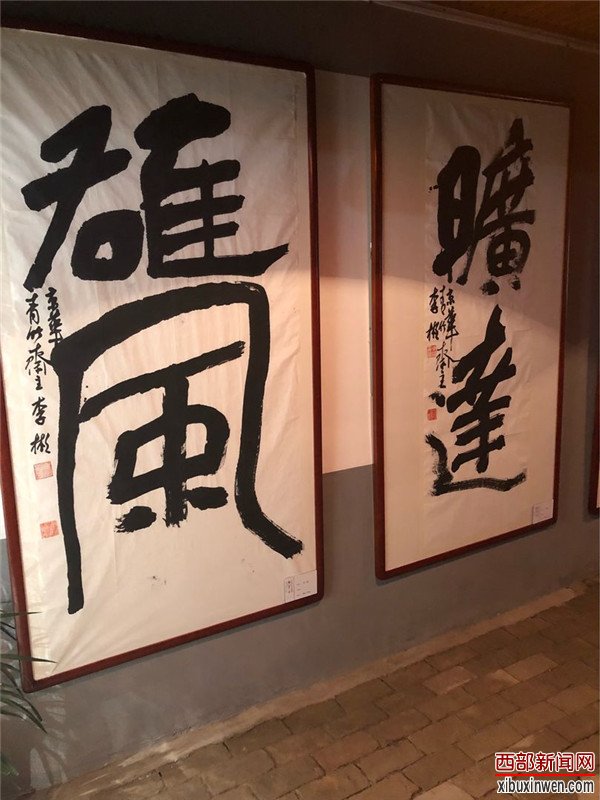 雄風
京華
青竹齋主李彬
曠達
京華
青竹齋主
李彬
西部新闻网
xibuxinwen.com